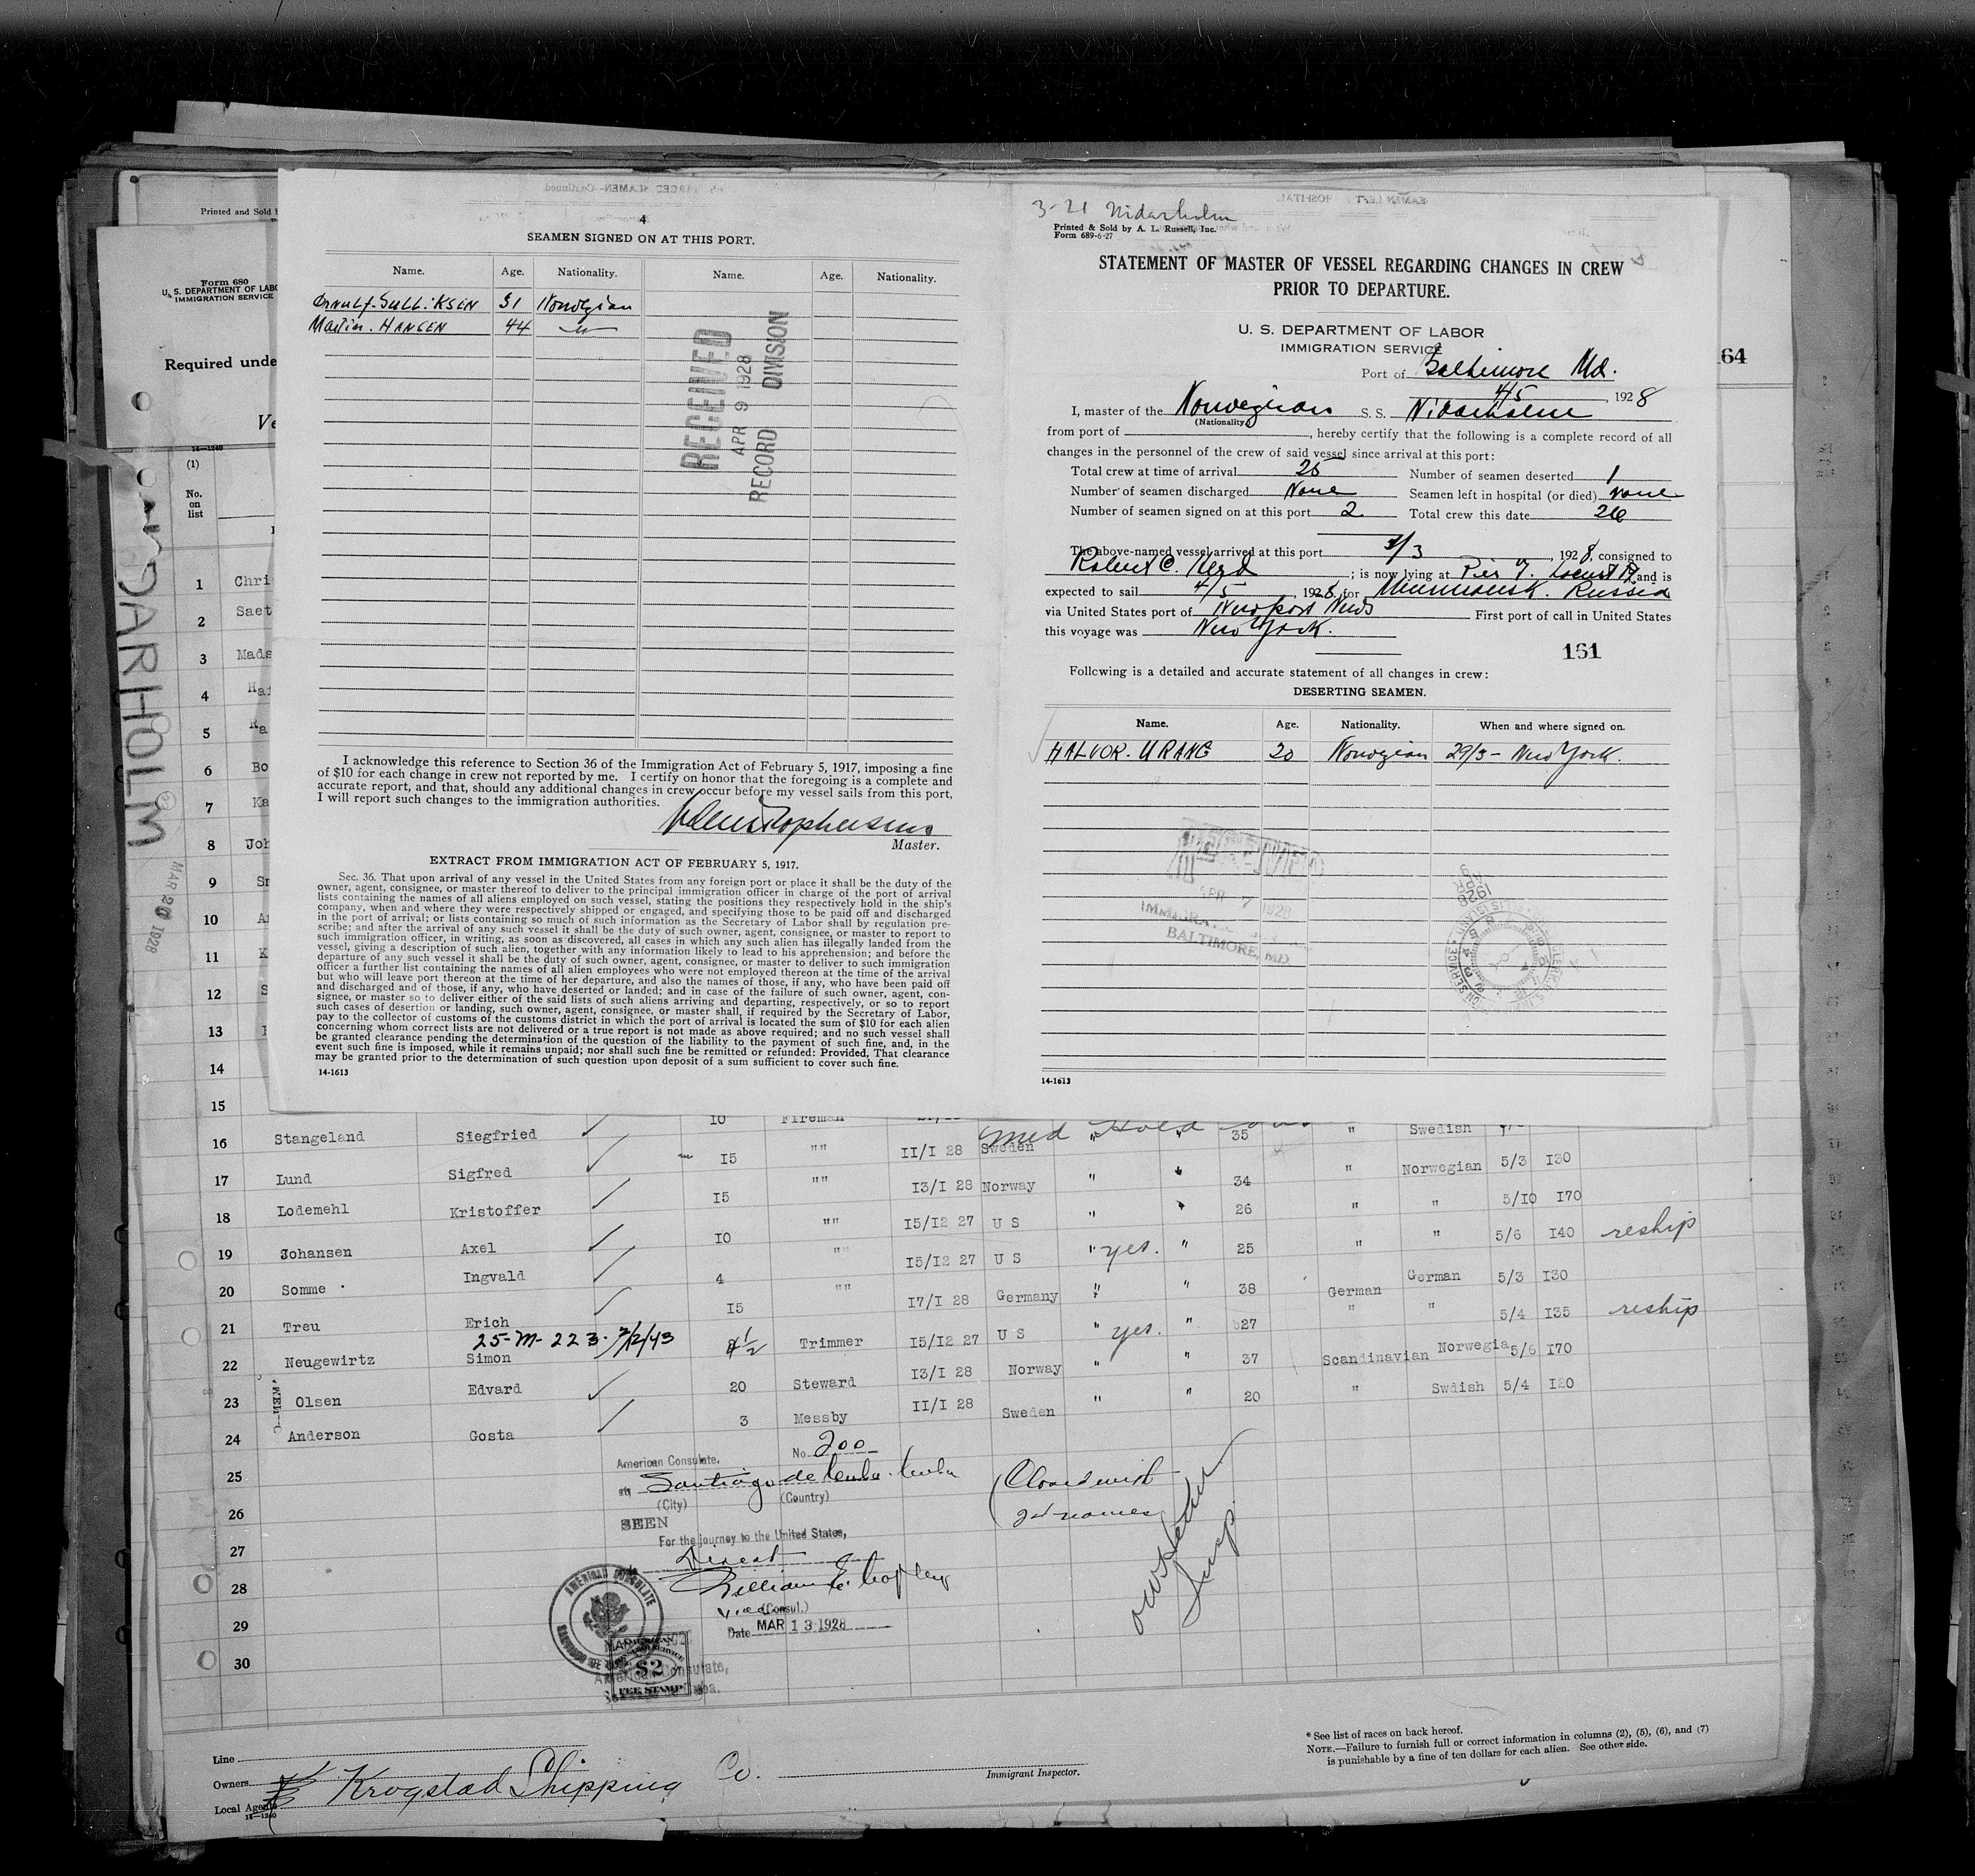 4
SEAMEN SIGNED ON AT THIS PORT.
Name. Age. Nationality. Name. Age. Nationality.
31 Norwegian
Martin. HANSEN 44 -"-
RECEIVED
APR 9 1928
RECORD DIVISION
I acknowledge this reference to Section 36 of the Immigration Act of February 5, 1917, imposing a fine
of $10 for each change in crew not reported by me. I certify on honor that the foregoing is a complete and
accurate report, and that, should any additional changes in crew occur before my vessel sails from this port,
I will report such changes to the immigration authorities.
Master.
EXTRACT FROM IMMIGRATION ACT OF FEBRUARY 5, 1917.
Sec. 36. That upon arrival of any vessel in the United States from any foreign port or place it shall be the duty of the
owner, agent, consignee, or master thereof to deliver to the principal immigration officer in charge of the port of arrival
lists containing the names of all aliens employed on such vessel, stating the positions they respectively hold in the ship's
company, when and where they were respectively shipped or engaged, and specifying those to be paid off and discharged
in the port of arrival; or lists containing so much of such information as the Secretary of Labor shall by regulation pre-
scribe; and after the arrival of any such vessel it shall be the duty of such owner, agent, consignee, or master to report to
such immigration officer, in writing, as soon as discovered, all cases in which any such alien has illegally landed from the
vessel, giving a description of such alien, together with any information likely to lead to his apprehension; and before the
departure of any such vessel it shall be the duty of such owner, agent, consignee, or master to deliver to such immigration
officer a further list containing the names of all alien employees who were not employed thereon at the time of the arrival
but who will leave port thereon at the time of her departure, and also the names of those, if any, who have been paid off
and discharged and of those, if any, who have deserted or landed; and in case of the failure of such owner, agent, con-
signee, or master so to deliver either of the said lists of such aliens arriving and departing, respectively, or so to report
such cases of desertion or landing, such owner, agent, consignee, or master shall, if required by the Secretary of Labor,
pay to the collector of customs of the customs district in which the port of arrival is located the sum of $10 for each alien
concerning whom correct lists are not delivered or a true report is not made as above required; and no such vessel shall
be granted clearance pending the determination of the question of the liability to the payment of such fine, and, in the
event such fine is imposed, while it remains unpaid; nor shall such fine be remitted or refunded: Provided, That clearance
may be granted prior to the determination of such question upon deposit of a sum sufficient to cover such fine.
14-1613
3-21 Nidarholm
Printed & Sold by A. L. Russell, Inc.
Form 689-6-27
STATEMENT OF MASTER OF VESSEL REGARDING CHANGES IN CREW
PRIOR TO DEPARTURE.
U. S. DEPARTMENT OF LABOR
IMMIGRATION SERVICE
Port of Baltimore Md.
4/5, 1928
I, master of the Norwegian S. S. Nidarholm
(Nationality)
from port of , hereby certify that the following is a complete record of all
changes in the personnel of the crew of said vessel since arrival at this port:
Total crew at time of arrival 25 Number of seamen deserted 1
Number of seamen discharged None Seamen left in hospital (or died) None
Number of seamen signed on at this port 2 Total crew this date 26
The above-named vessel arrived at this port /3, 1928, consigned to
Robert C. ; is now lying at Pier 7. Locust Pt and is
expected to sail 4/5, 1928, for Russia
via United States port of Newport News First port of call in United States
this voyage was New York.
161
Following is a detailed and accurate statement of all changes in crew:
DESERTING SEAMEN.
Name. Age. Nationality. When and where signed on.
HALVOR. URANG 20 Norwegian 29/3- New York.
RECEIVED
APR 7 1928
BALTIMORE, MD.
14-1613
Printed and Sold b
Form 680
U. S. DEPARTMENT OF LABO
IMMIGRATION SERVICE
Required unde
Ve
64
14-1240
(1)
No.
on
list
NIDARHOLM
MAR 20 1928
1 Chri
2 Saet
3 Mads
4 Haf
5 Ra
6 Bo
7 Ka
8 Joh
9 Sm
10 A
11 K
12 S
13
14
15 10 Fireman
Med Hold
16 Stangeland Siegfried 15 "" 11/I 28 Sweden " " 35 " Swedish
17 Lund Sigfred 15 "" I3/I 28 Norway " " 34 Norwegian 5/3 I30
18 Lodemehl Kristoffer 10 "" I5/I2 27 U S " " 26 " " 5/10 I70
19 Johansen Axel "" I5/I2 27 U S " yes. " 25 " " 5/6 I40 reship
20 Somme Ingvald 4 "" I7/I 28 Germany " " 38 German German 5/3 I30
21 Treu Erich I5 Trimmer I5/I2 27 U S " yes. " 27 " " 5/4 I35 reship
25-M-223- 3/12/43
22 Neugewirtz Simon I3/I 28 Norway " " 37 Scandinavian Norwegia 5/6 I70
23 Olsen Edvard 20 Steward II/I 28 Sweden " " 20 " Swdish 5/4 I20
24 Anderson Gosta 3 Messby
25
26
27
28
29
30
No. 200
American Consulate.
at Santiago de Cuba. Cuba
(City) (Country)
SEEN
For the journey to the United States,
Direct
William E. Copley
Vice (Consul.)
Date MAR 13 1928
AMERICAN CONSULATE
$2
FEE STAMP
American Consulate,
(Closed with
24 names
Insp.
Line
Owners
Local Agents
Krogstad Shipping Co.
14-1240
Immigrant Inspector.
* See list of races on back hereof.
NOTE.—Failure to furnish full or correct information in columns (2), (5), (6), and (7)
is punishable by a fine of ten dollars for each alien. See other side.